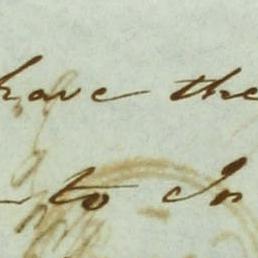 have the
to In